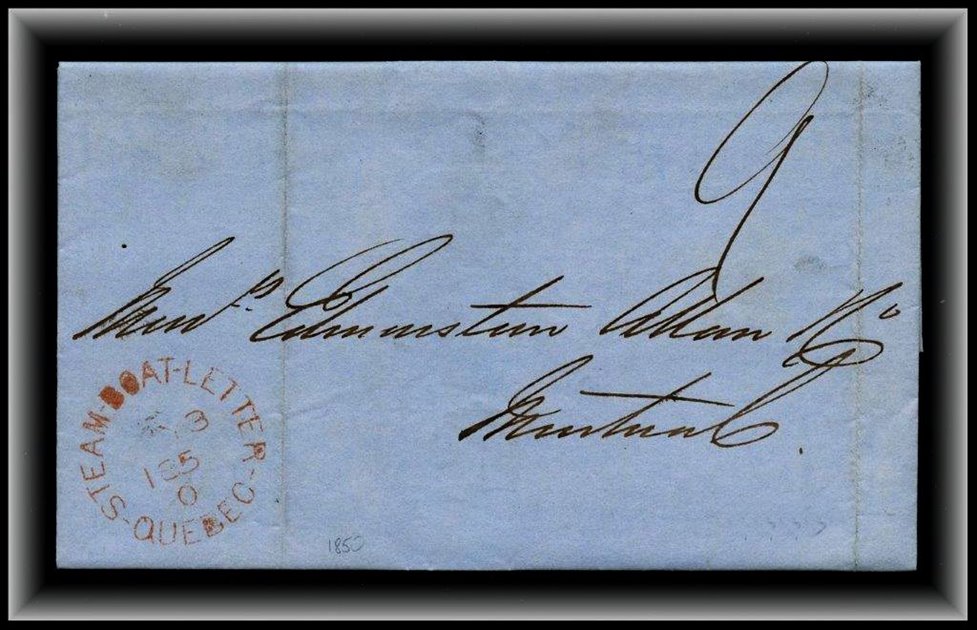 9
Messrs Edmonstone Allan & Co
Montreal
STEAM-BOAT-LETTER-
3
185
0
-QUEBEC-
1850